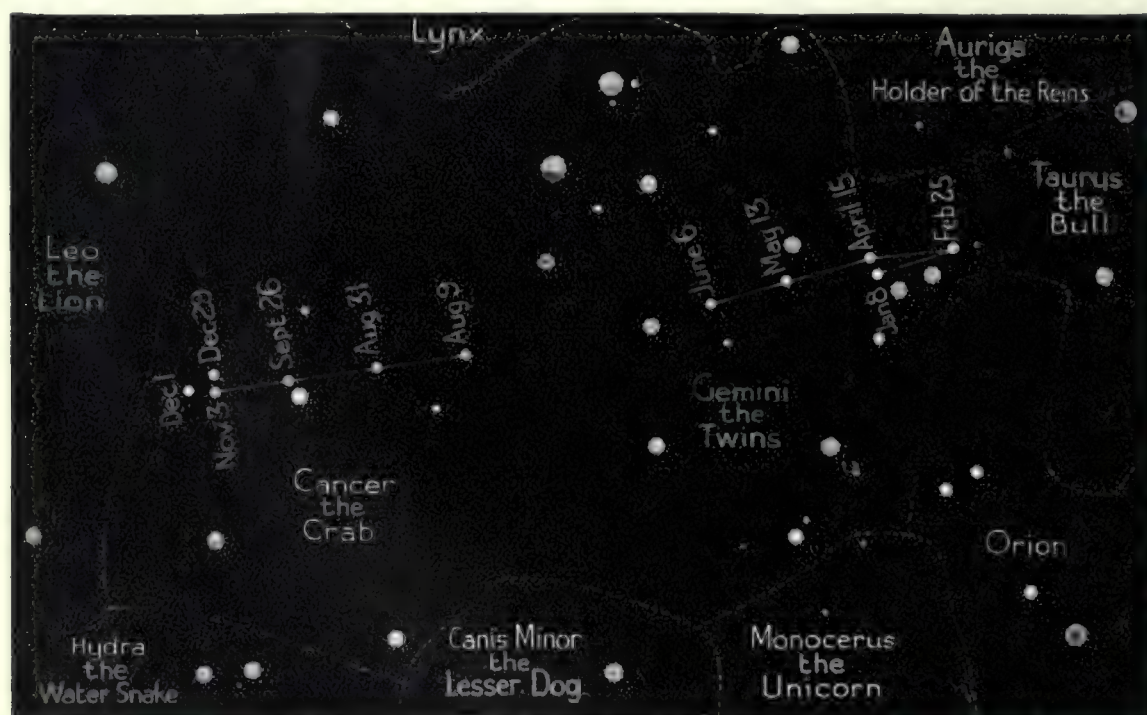 Lynx
Auriga
the
Holder of the Reins
Taurus
the
Bull
Leo
the
Lion
Dec 1
Dec 29
Nov 3
Sept 26
Aug 31
Aug 9
June 6
May 13
April 15
Feb 25
Jan 8
Gemini
the
Twins
Cancer
the
Crab
Orion
Hydra
the
Water Snake
Canis Minor
the
Lesser Dog
Monocerus
the
Unicorn